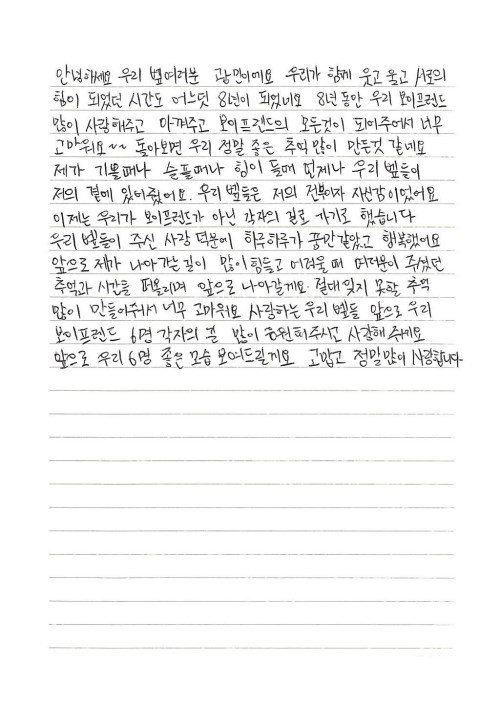 안녕하세요 우리 벺여러분 광민이에요 우리가 함께 웃고 울고 서로의
힘이 되었던 시간도 어느덧 8년이 되었네요 8년동안 우리 보이프렌드
많이 사랑해주고 아껴주고 보이프렌드의 모든것이 되어주어서 너무
고마워요~~ 돌아보면 우리 정말 좋은 추억 많이 만든것 같네요
제가 기쁠때나 슬플때나 힘이 들때 언제나 우리 벺들이
저의 곁에 있어줬어요. 우리 벺들은 저의 전부이자 자신감이었어요
이제는 우리가 보이프렌드가 아닌 각자의 길로 가기로 했습니다
우리 벺들이 주신 사랑 덕분에 하루하루가 꿈만같았고 행복했어요
앞으로 제가 나아가는길이 많이힘들고 어려울 때 여러분이 주셨던
추억과 시간을 떠올리며 앞으로 나아갈게요 절대 잊지 못할 추억
많이 만들어주셔서 너무 고마워요 사랑하는 우리 벺들 앞으로 우리
보이프렌드 6명 각자의 길 많이 응원해주시고 사랑해 주세요
앞으로 우리 6명 좋은 모습 보여드릴게요 고맙고 정말많이 사랑합니다